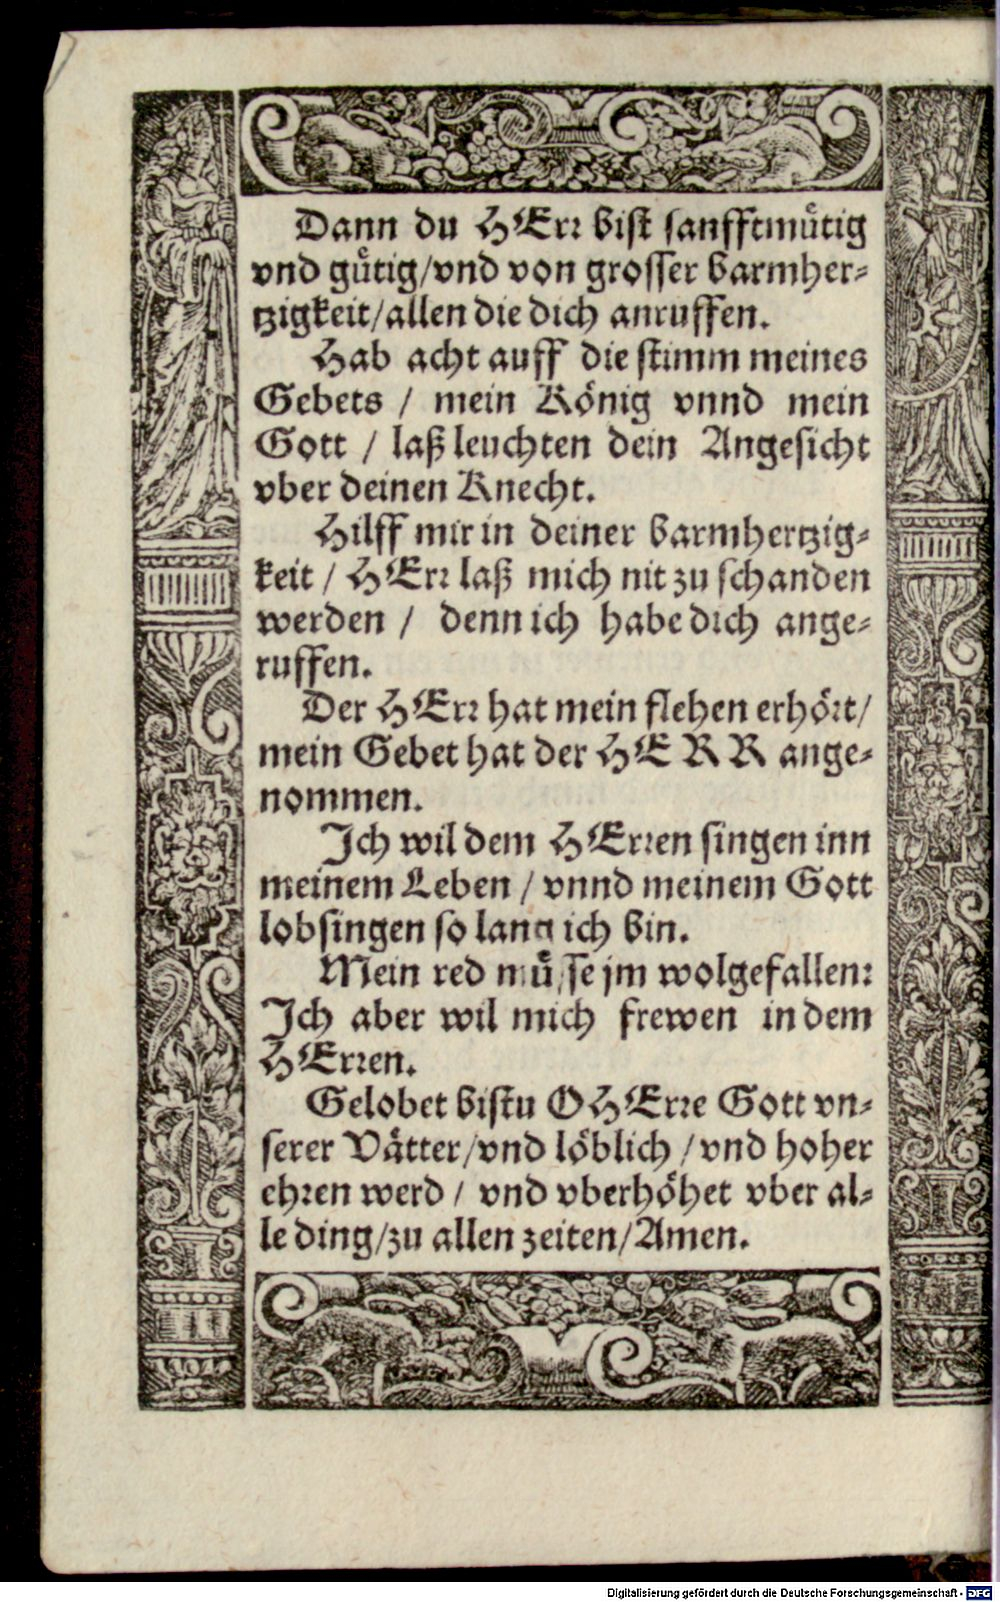 Dann du HErr bist sanfftmuͤtig
vnd guͤtig/vnd von grosser barmher-
tzigkeit/allen die dich anruffen.
Hab acht auff die stimm meines
Gebets / mein Koͤnig vnnd mein
Gott / laß leuchten dein Angesicht
vber deinen Knecht.
Hilff mir in deiner barmhertzig-
keit / HErr laß mich nit zu schanden
werden / denn ich habe dich ange-
ruffen.
Der HErr hat mein flehen erhoͤrt/
mein Gebet hat der HERR ange-
nommen.
Ich wil dem HErren singen inn
meinem Leben / vnnd meinem Gott
lobsingen so lang ich bin.
Mein red muͤsse jm wolgefallen:
Ich aber wil mich frewen in dem
HErren.
Gelobet bistu O HErre Gott vn-
serer Vaͤtter/vnd loͤblich / vnd hoher
ehren werd / vnd vberhoͤhet vber al-
le ding/zu allen zeiten/Amen.
Digitalisierung gefördert durch die Deutsche Forschungsgemeinschaft - DFG